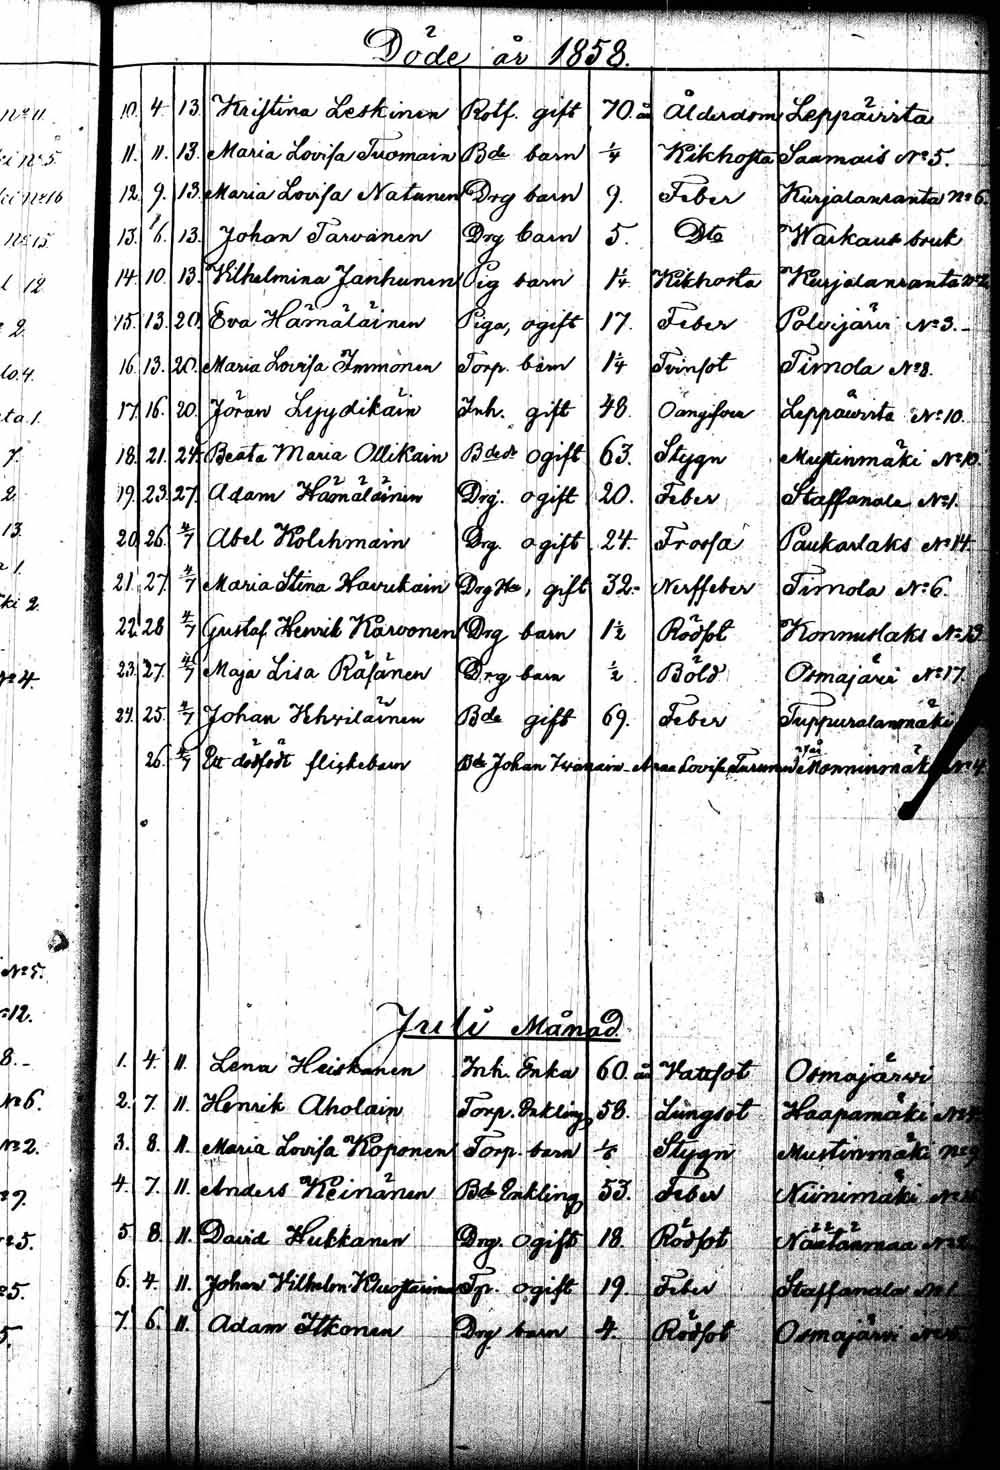 Döde år 1858.
No 11 10. 4. 13. Kristina Leskinen Rotf. gift 70. år Ålderdom Leppävirta
No 5 11. 11. 13. Maria Lovisa Tuomain Bde barn 1/4 Kikhosta Saamais No 5.
No 16 12. 9. 13. Maria Lovisa Natunen Drg barn 9. Feber Kurjalanranta No 6.
No 15 13. 1/6. 13. Johan Tarvanen Drg barn 5. Dto Warkaus bruk
12 14. 10. 13. Wilhelmina Janhunen Pig barn 1 1/4 Kikhosta Kurjalanranta
2 15. 13. 20. Eva Hämäläinen Piga, ogift 17. Feber Polvijärvi No 3.
4. 16. 13. 20. Maria Lovisa Immonen Torp. barn 1 1/4 Tvinsot Timola No 8.
ta 1. 17. 16. 20. Jöran Lyydikäin Inh. gift 48. Leppävirta No 10.
7. 18. 21. 24. Beata Maria Ollikain ogift 63. Stygn Mustinmäki No 10.
2 19. 23. 27. Adam Hämäläinen Drg. ogift 20. Feber Staffanala No 1.
13. 20. 26. 4/7 Abel Kolehmain Drg. ogift 24. Frossa Paukarlaks No 14.
1. 21. 27. 4/7 Maria Stina Havukain Drg Hu, gift 32. Nerffeber Timola No 6.
ki 2. 22. 28 4/7 Gustaf Henrik Karvonen Drg barn 1 1/2 Rödsot Konnuslaks No
No 4. 23. 27. 4/7 Maja Lisa Räsänen Drg barn 1/2 Böld Osmajärvi No 17.
24. 25. 4/7 Johan Vehviläinen Bde gift 69. Feber
26. 4/7 Ett dödfödt flickebarn Bde Johan Anna Lovisa Turunen No 4.
Juli Månad
No 5.
12.
8. 1. 4. 11. Lena Heiskanen Inh. Enka 60. år Vattsot Osmajärvi
No 6. 2. 7. 11. Henrik Aholain Torp. Enkling 58. Lungsot Haapamäki
No 2. 3. 8. 11. Maria Lovisa Koponen Torp. barn Stygn Mustinmäki
9. 4. 7. 11. Anders Keinänen Bde Enkling 53. Feber Niinimäki
5. 5. 8. 11. David Hukkanen Drg. ogift 18. Rödsot Näätänmaa
5. 6. 4. 11. Johan Vilhelm Tp. ogift 19. Feber Staffanala No 1
5. 7. 6. 11. Adam Itkonen Drg barn 4. Rödsot Osmajärvi